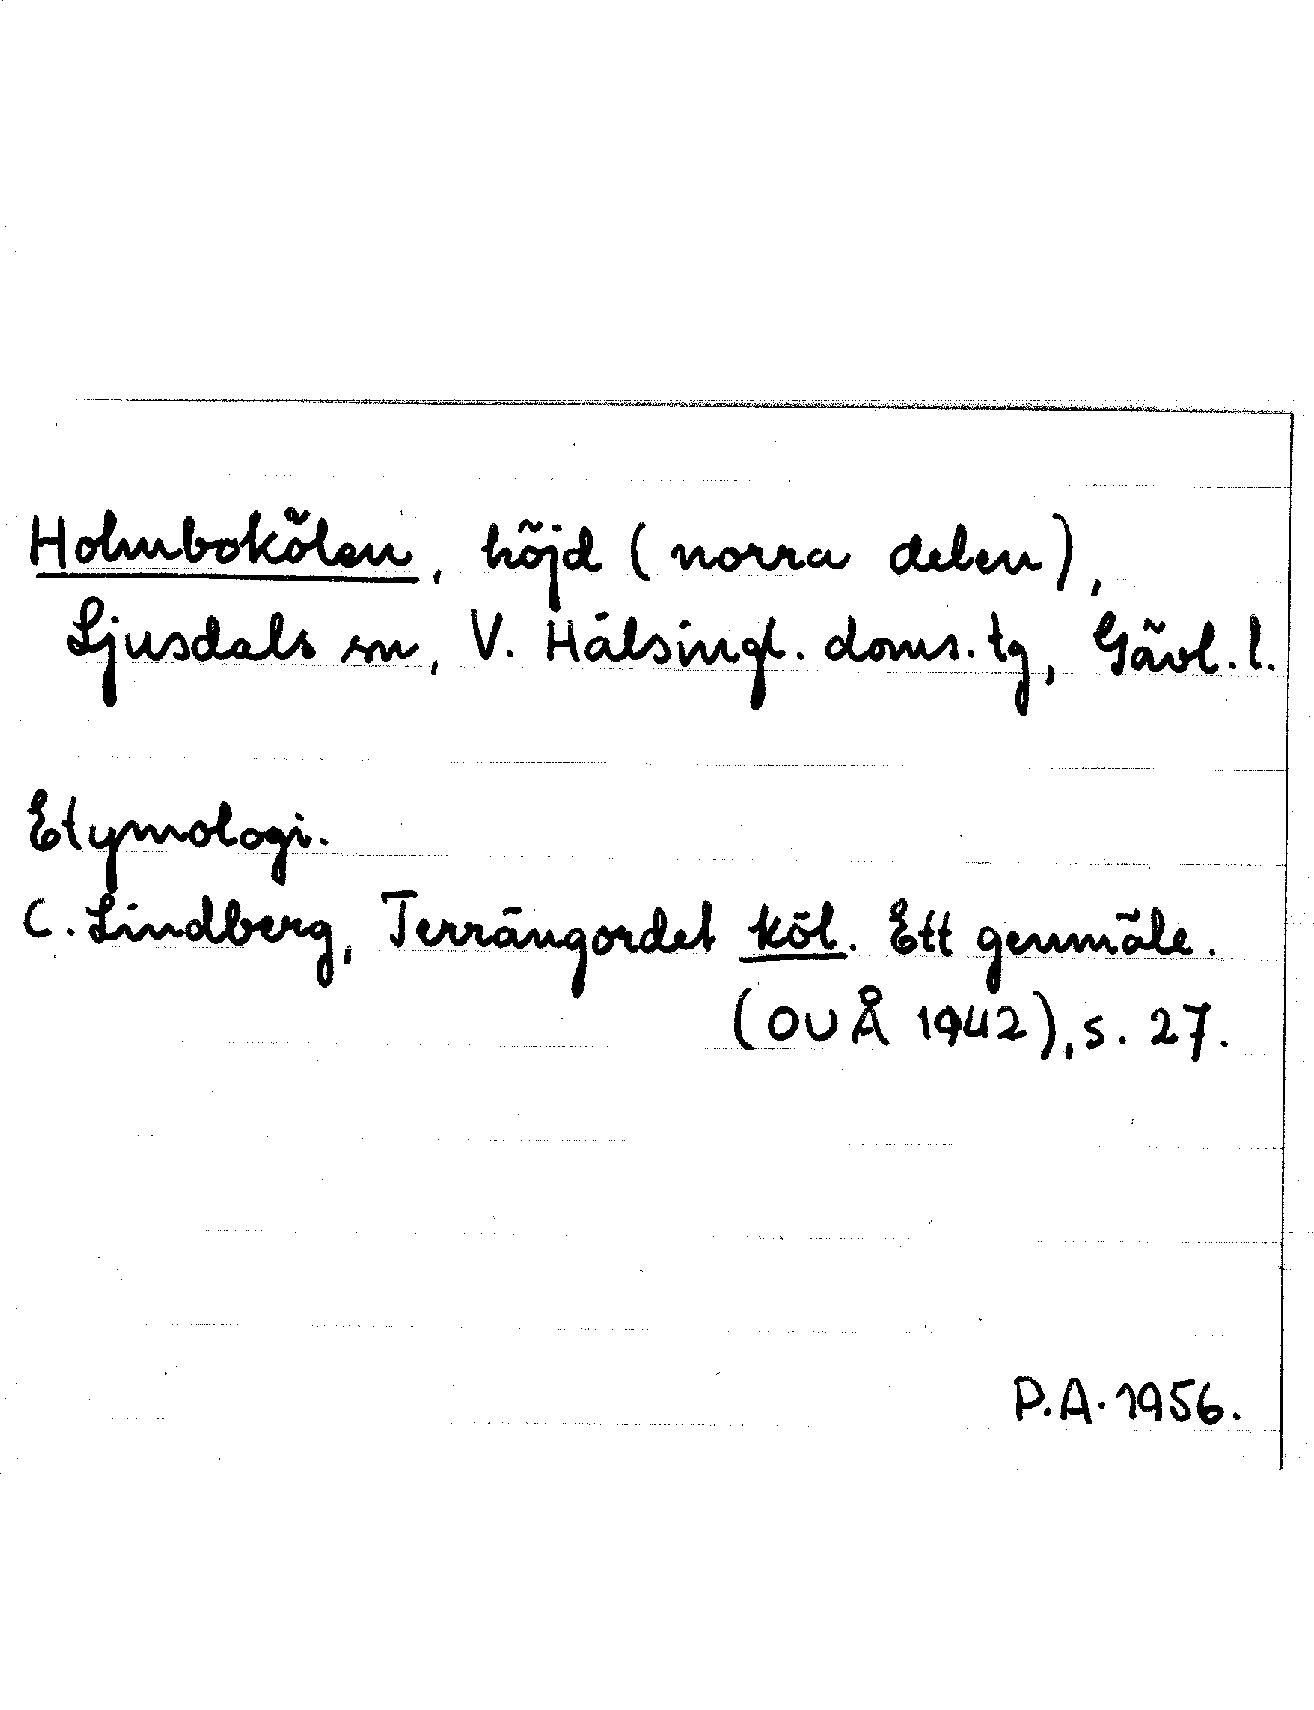 Holmbokölen, höjd (norra delen),
Ljusdals sn, V. Hälsingl. doms. tg, Gävl. l.
Etymologi.
C. Lindberg, Terrängordet köl. Ett genmäle.
(OUÅ 1942), s. 27.
P.A. 1956.